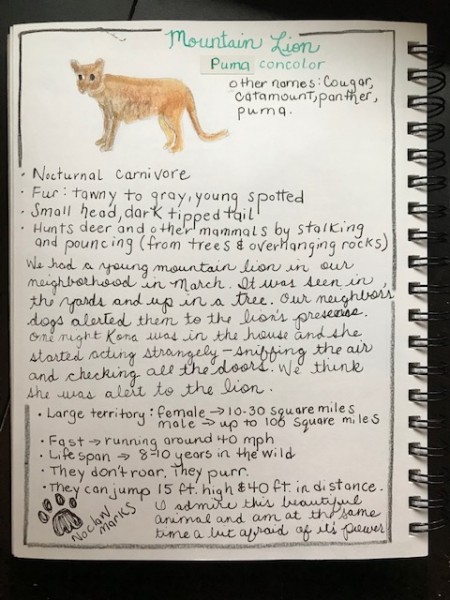 Mountain Lion
Puma concolor
other names: Cougar,
catamount, panther,
puma.
· Nocturnal carnivore
· Fur: tawny to gray, young spotted
· Small head, dark tipped tail
· Hunts deer and other mammals by stalking
and pouncing (from trees & overhanging rocks)
We had a young mountain lion in our
neighborhood in March. It was seen in
the yards and up in a tree. Our neighbors
dogs alerted them to the lion's presense.
One night Kona was in the house and she
started acting strangely - sniffing the air
and checking all the doors. We think
she was alert to the lion.
· Large territory: female → 10-30 square miles
male → up to 100 square miles
· Fast → running around 40 mph
· Lifespan → 8-10 years in the wild
· They don't roar, They purr.
· They can jump 15 ft. high & 40 ft. in distance.
I admire this beautiful
animal and am at the same
time a bit afraid of its power
No claw
marks